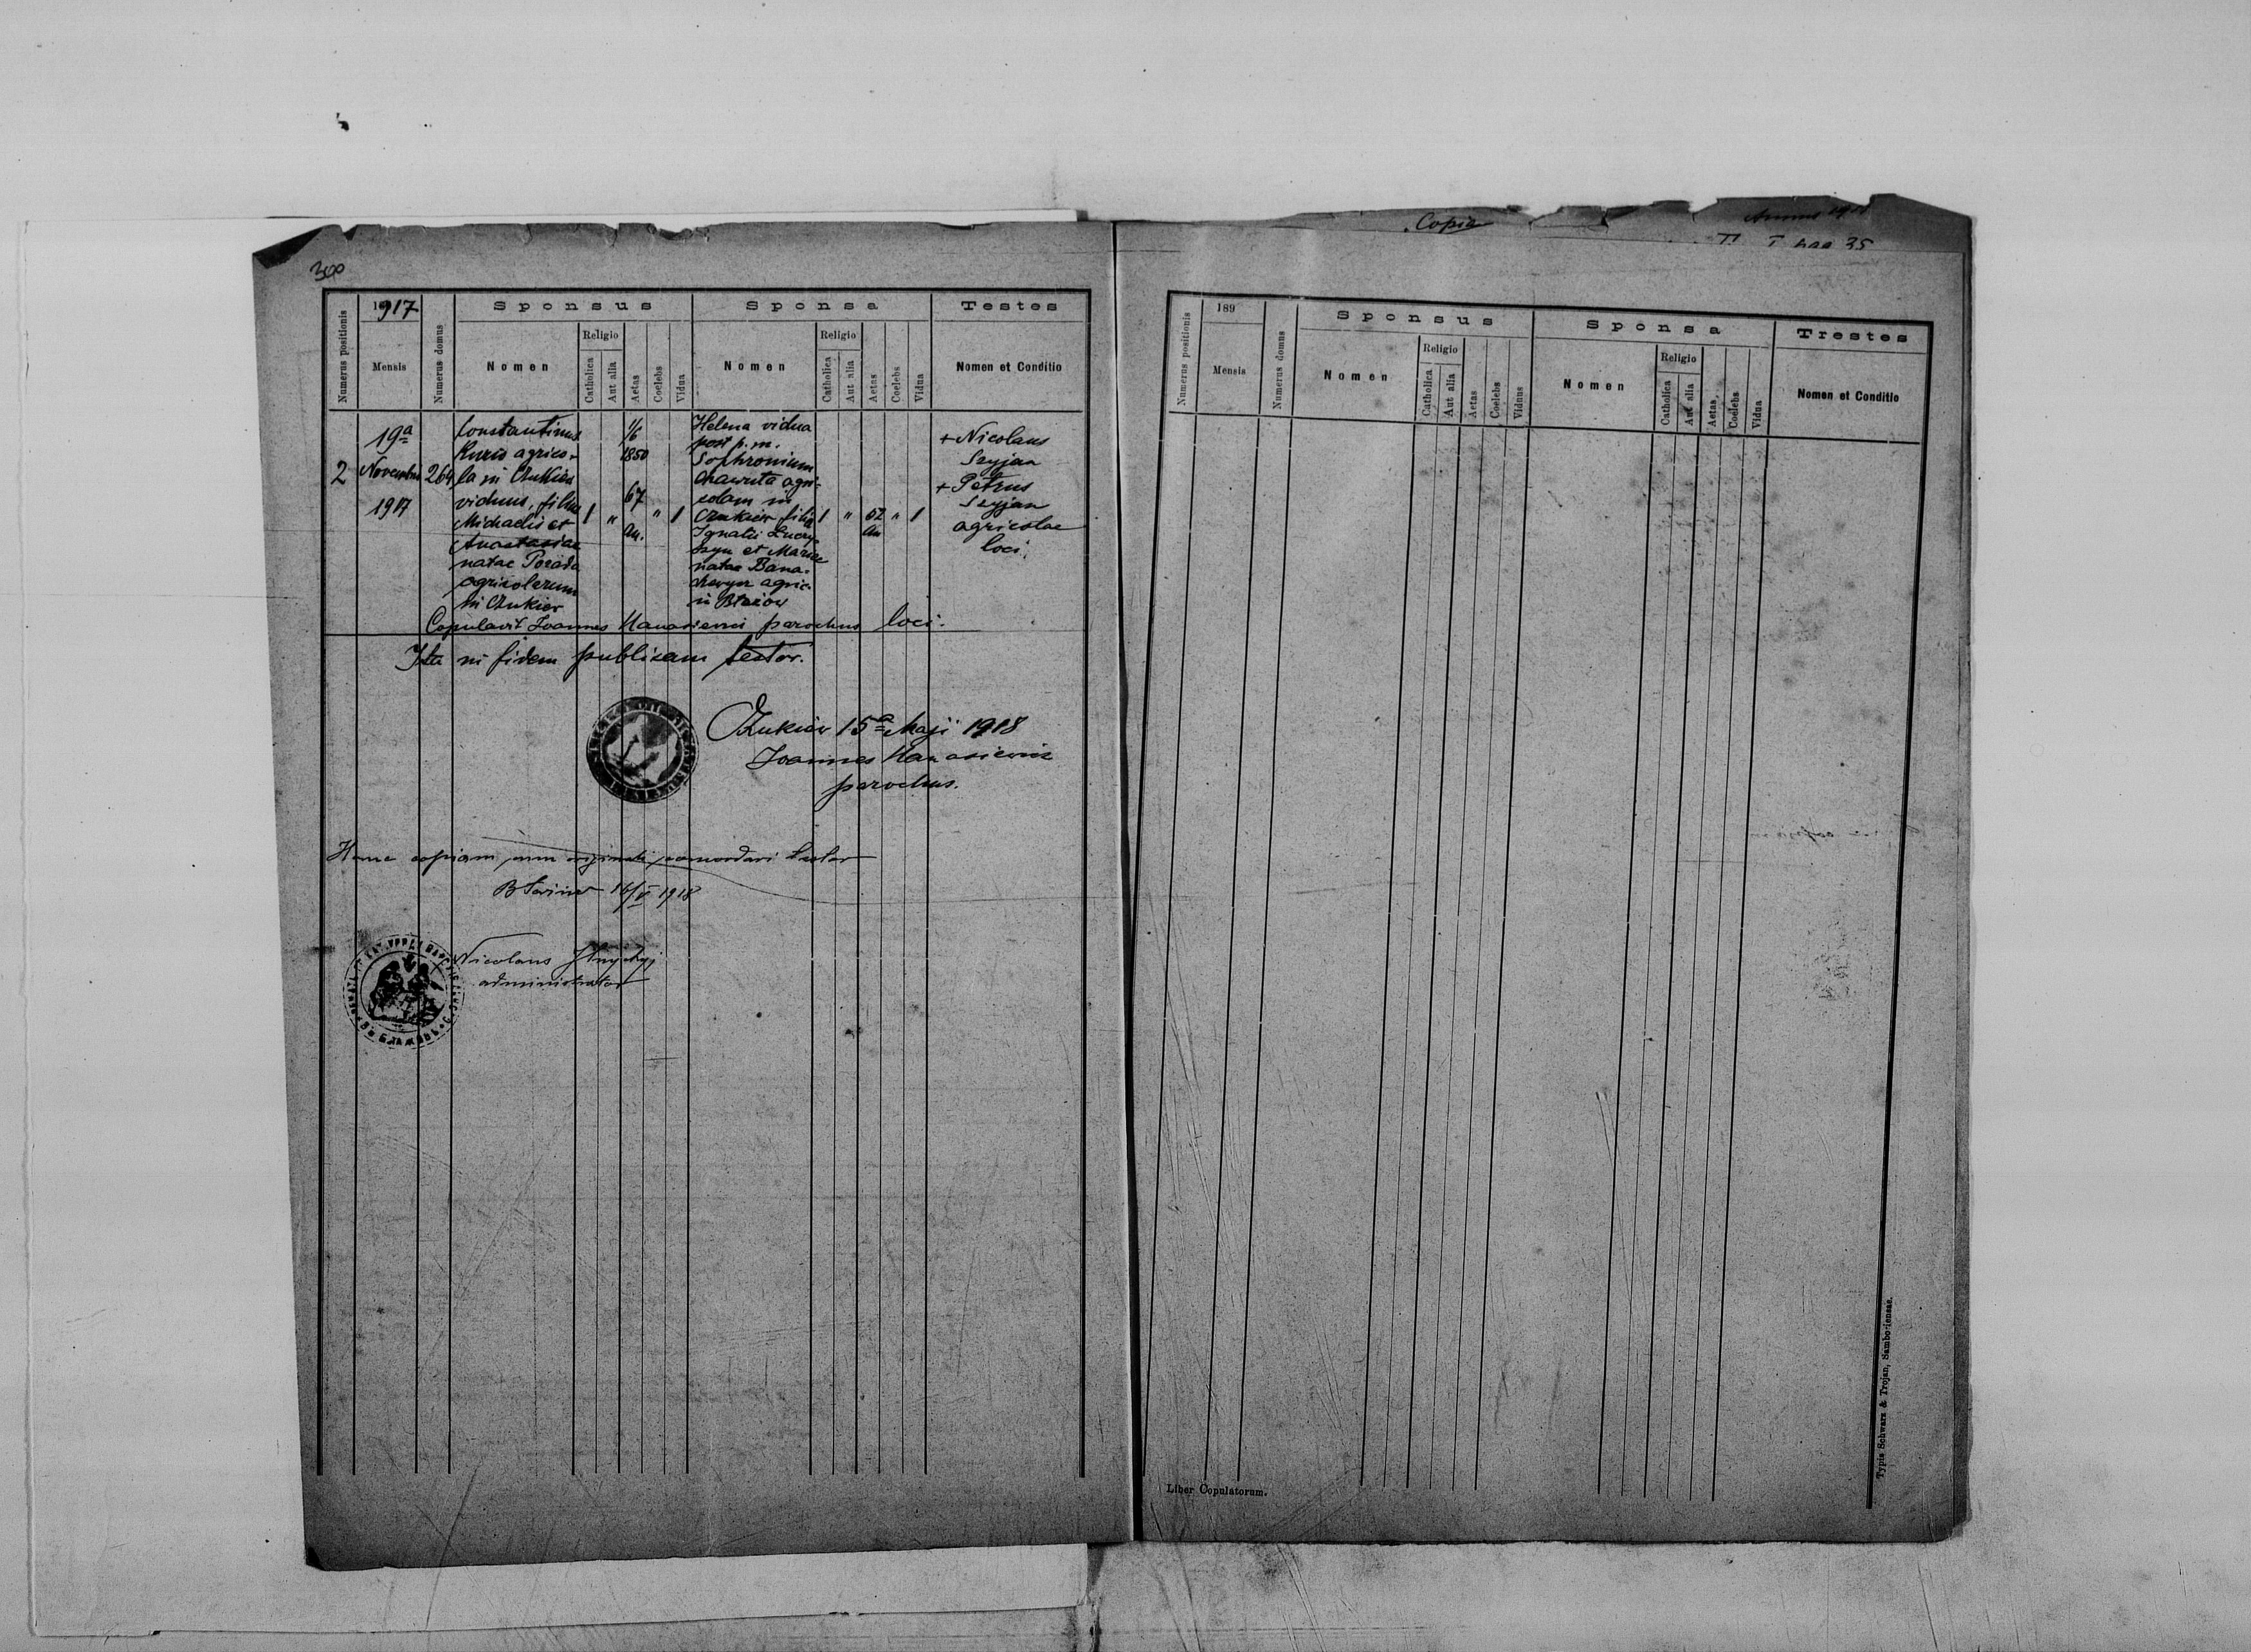 Copia
Annus 19
pag 35
300
Numerus positionis
1917
Mensis
Numerus domus
Sponsus
Nomen
Religio
Catholica
Aut alia
Aetas
Coelebs
Vidua
Sponsa
Nomen
Religio
Catholica
Aut alia
Aetas
Coelebs
Vidua
Testes
Nomen et Conditio
2
19ª
Novembris
1917
264
Constantinus
agrico-
la in Czukiew
viduus, filius
Michaelis et
Anastasiae
natae Posada
agricolarum
in Czukiew
1
"
1/6
1850
67
an.
"
1
Helena vidua
post p.m.
Sophronium
Chawuta agri-
colam in
Czukiew filia
Ignatii Lucy-
szyn et Mariae
natae Bana-
chewycz agric.
in Błażów
1
"
52
an
"
1
+ Nicolaus
Szyjan
+ Petrus
Szyjan
agricolae
loci.
Copulavit Joannes Hanasiewicz parochus loci.
Ita in fidem publicam testor.
Czukiew 15ª Maji 1918
Joannes Hanasiewicz
parochus.
Hanc copiam cum originali concordari testor
16/V 1918
Nicolaus
administrator
Numerus positionis
189
Mensis
Numerus domus
Sponsus
Nomen
Religio
Catholica
Aut alia
Aetas
Coelebs
Viduus
Sponsa
Nomen
Religio
Catholica
Aut alia
Aetas
Coelebs
Vidua
Trestes
Nomen et Conditio
Liber Copulatorum.
Typis Schwarz & Trojan, Samboriensae.